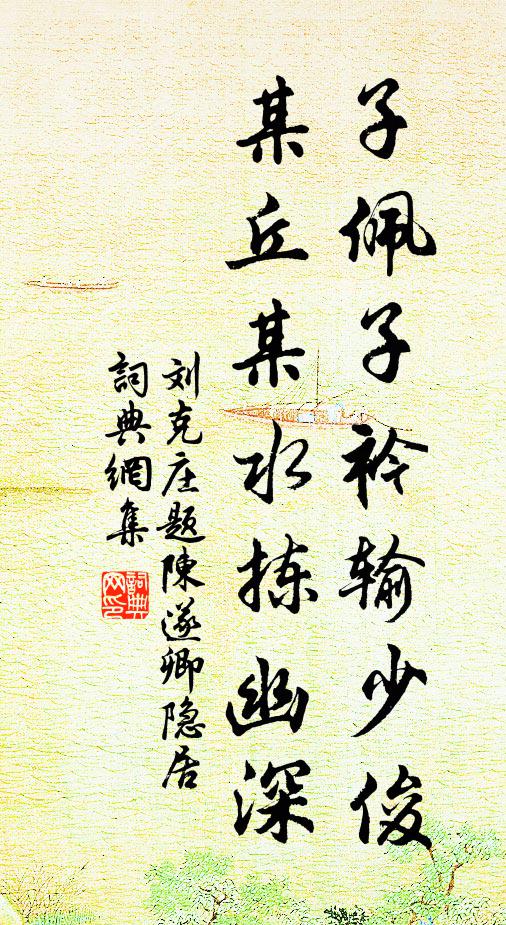 子佩子衿输少俊
某丘某水拣幽深
刘克庄题陳遂卿隐居
詞典網集
詞典
网印